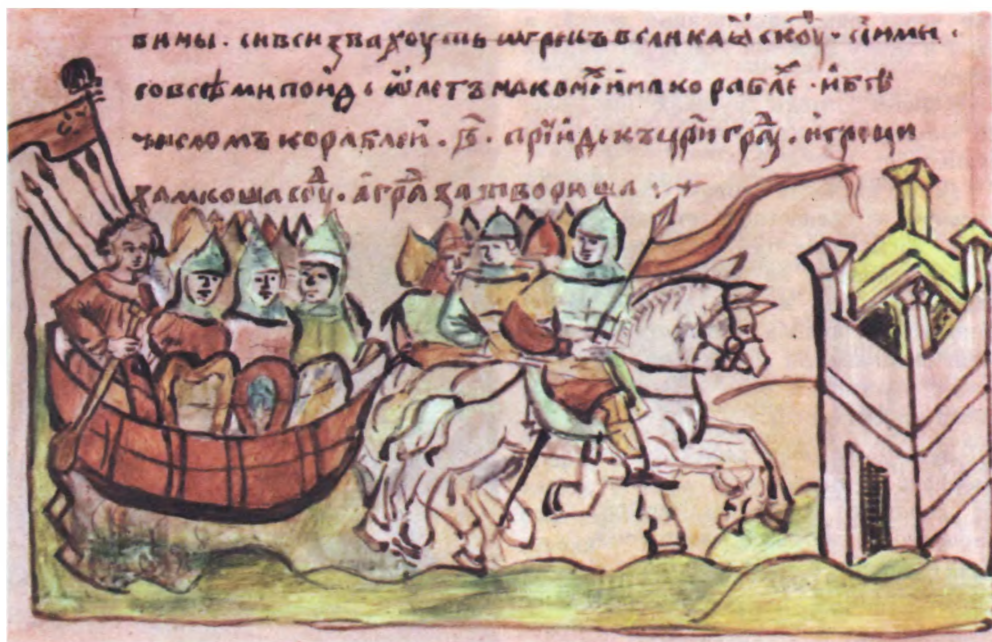 вими · си вси звахоуть ѿ грекъ великаѧ скоуⷴ · сими ·
со всѣми поиде ѡлегъ на конеⷯ и на корабле · и бѣ
числомъ кораблеи · ҂в҃ · прїиде къ цр҃игрⷣаꙋ · и греци
замкоша соуⷣ · а граⷣ затвориша